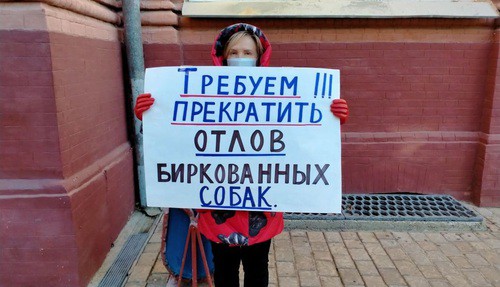 ТРЕБУЕМ !!!
ПРЕКРАТИТЬ
ОТЛОВ
БИРКОВАННЫХ
СОБАК.